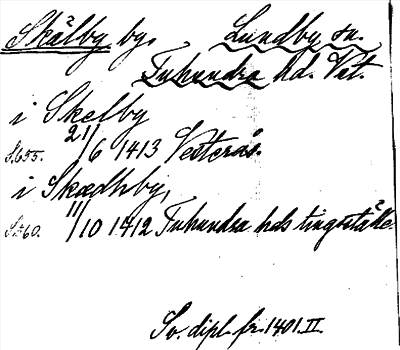 Skälby by. Lundby sn.
Tuhundra hd. Vst.
i Skelby
S.655. 21/6 1413 Vesterås.
i Skædhby,
S.460. 11/10 1412 Tuhundra hds tingställe
Sv. dipl. fr. 1401. II.